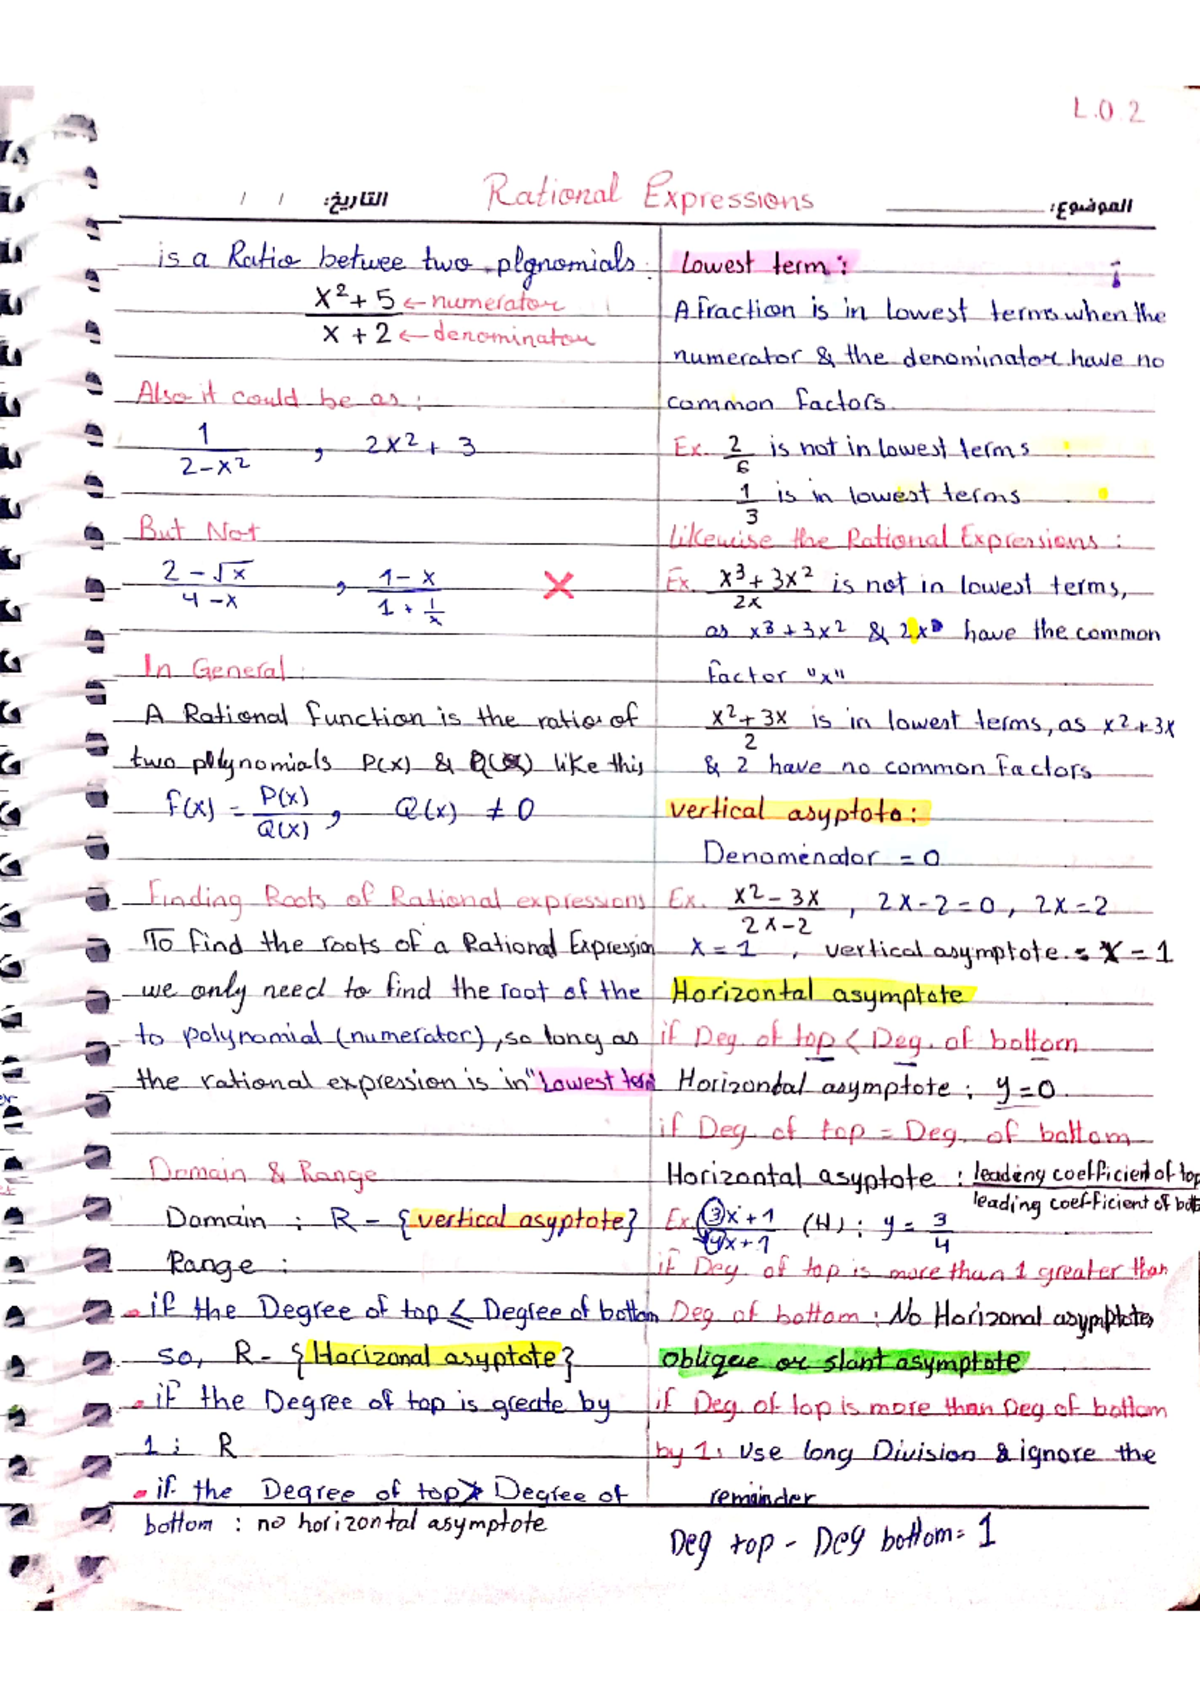 L.O.2
الموضوع:
Rational Expressions
التاريخ: / /
is a Ratio betwee two plynomials:
x²+5 ← numerator
x+2 ← denominator
Also it could be as:
1/(2-x²) , 2x²+3
But Not
(2-√x)/(4-x) , (1-x)/(1+1/x) ✗
In General:
A Rational function is the ratio of
two polynomials P(x) & Q(x) like this
f(x) = P(x)/Q(x) , Q(x) ≠ 0
Finding Roots of Rational expressions
To find the roots of a Rational Expression
we only need to find the root of the
to polynomial (numerator), so long as
the rational expression is in "Lowest term
Domain & Range
Domain : R - {vertical asyptote}
Range :
if the Degree of top ≤ Degree of bottom
so, R - {Horizonal asyptote}
if the Degree of top is greate by
1 : R
if the Degree of top > Degree of
bottom : no horizontal asymptote
Lowest term :
A fraction is in lowest terms when the
numerator & the denominator have no
common factors.
Ex. 2/6 is not in lowest terms
1/3 is in lowest terms
likewise the Rational Expressions :
Ex. (x³+3x²)/2x is not in lowest terms,
as x³+3x² & 2x have the common
factor "x"
(x²+3x)/2 is in lowest terms, as x²+3x
& 2 have no common factors
vertical asyptote :
Denomenator = 0
Ex. (x²-3x)/(2x-2) , 2x-2=0 , 2x=2
x=1 , vertical asymptote : x=1
Horizontal asymptote
if Deg. of top < Deg. of bottom
Horizondal asymptote : y=0
if Deg of top = Deg. of bottom
Horizontal asyptote : leading coefficient of top
leading coefficient of bott
Ex. (3x+1)/(4x+1) (H) : y = 3/4
if Deg. of top is more than 1 greater than
Deg of bottom : No Horizonal asymptotes
oblique or slant asymptote
if Deg of top is more than Deg of bottom
by 1: use long Division & ignore the
remainder
Deg top - Deg bottom = 1